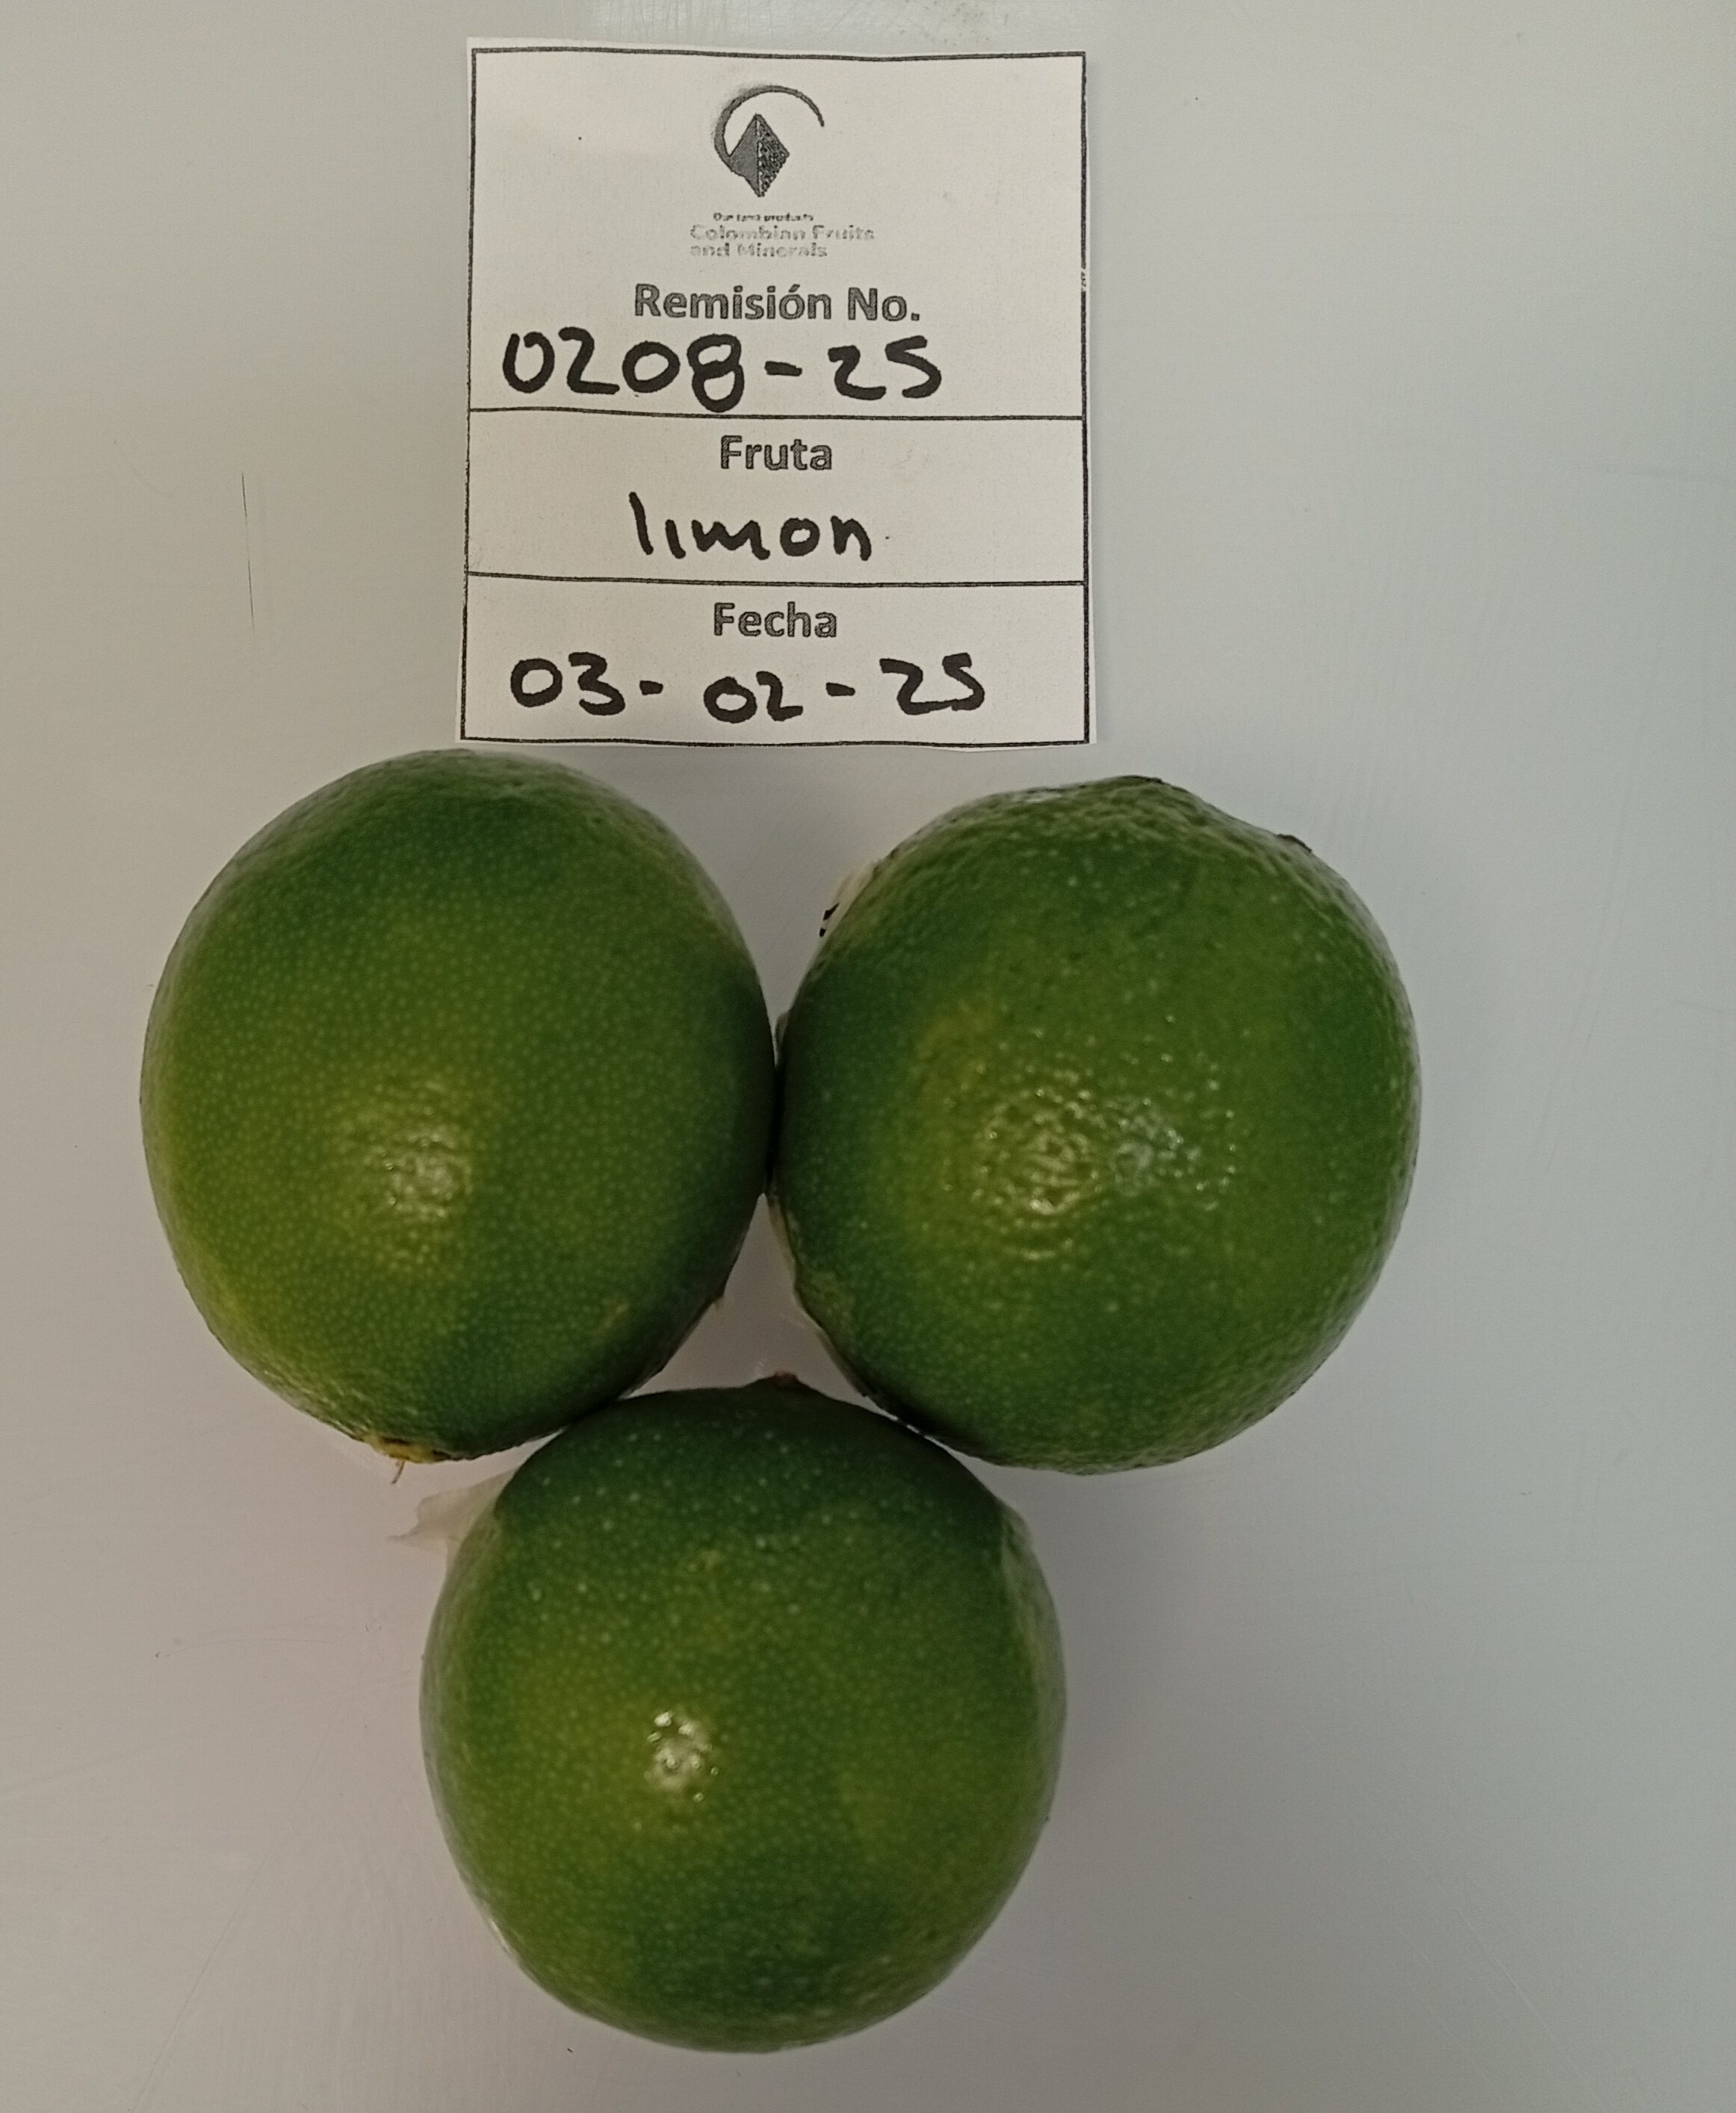 Our land products
Colombian Fruits
and Minerals
Remisión No.
0208-25
Fruta
limon
Fecha
03-02-25